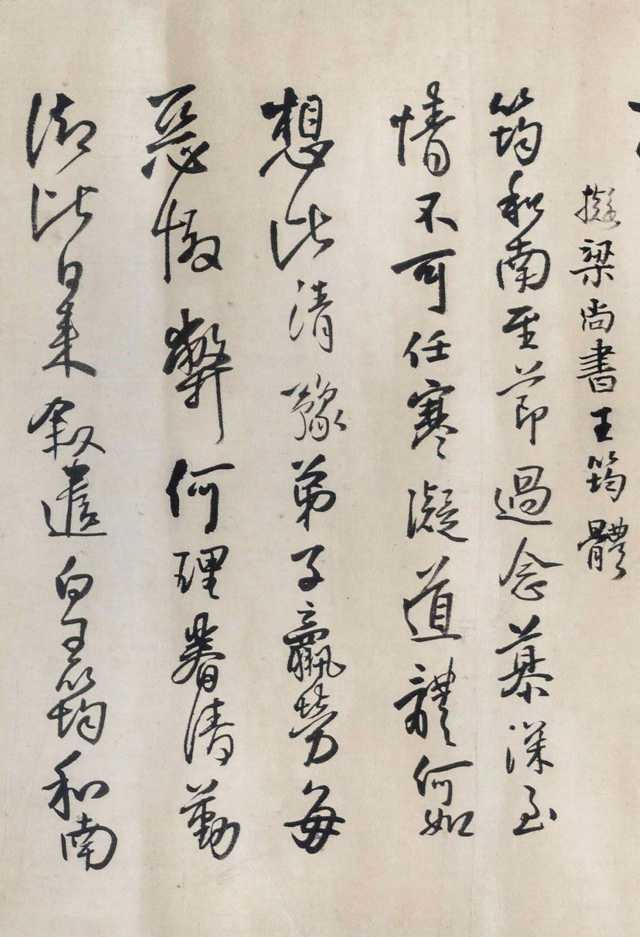 擬梁尚書王筠體
筠和南至節過念慕深至
情不可任寒凝道體何如
想比清豫弟子羸勞每
惡弊何理眷清勤
比日來敘遣白王筠和南